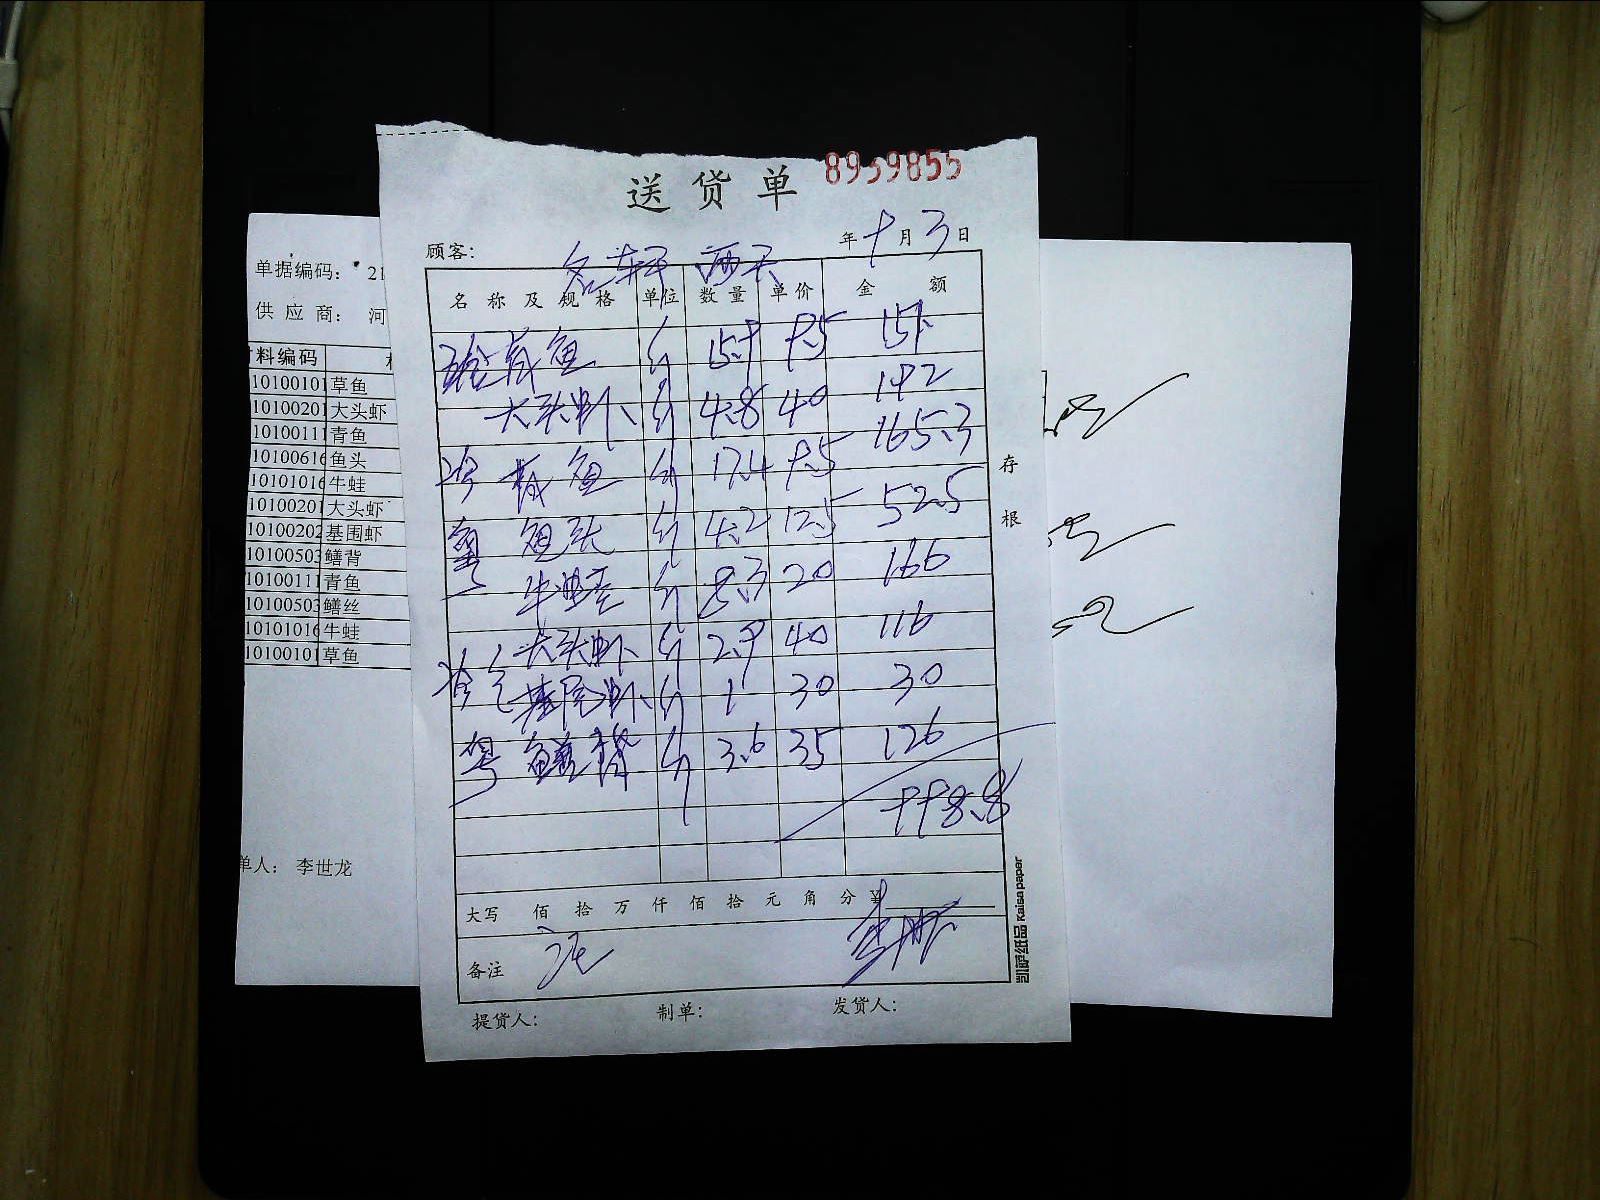 8939855
送货单
年 十 月 3 日
顾客：
名轩 两天
名称及规格 单位 数量 单价 金额
草鱼 斤 15.9 9.5 151
大头虾 斤 4.8 40 192
草鱼 斤 17.4 9.5 165.3
粤 鱼头 斤 4.2 12.5 52.5
牛蛙 斤 8.3 20 166
大头虾 斤 2.9 40 116
基围虾 斤 1 30 30
粤 鳝背 斤 3.6 35 126
998.8
大写 佰 拾 万 仟 佰 拾 元 角 分 ¥
备注
提货人： 制单： 发货人：
存根
凯萨纸品 Kaisa paper
单据编码： 21
供应商： 河
料编码
10100101 草鱼
10100201 大头虾
10100111 青鱼
10100616 鱼头
10101016 牛蛙
10100201 大头虾
10100202 基围虾
10100503 鳝背
10100111 青鱼
10100503 鳝丝
10101016 牛蛙
10100101 草鱼
单人： 李世龙